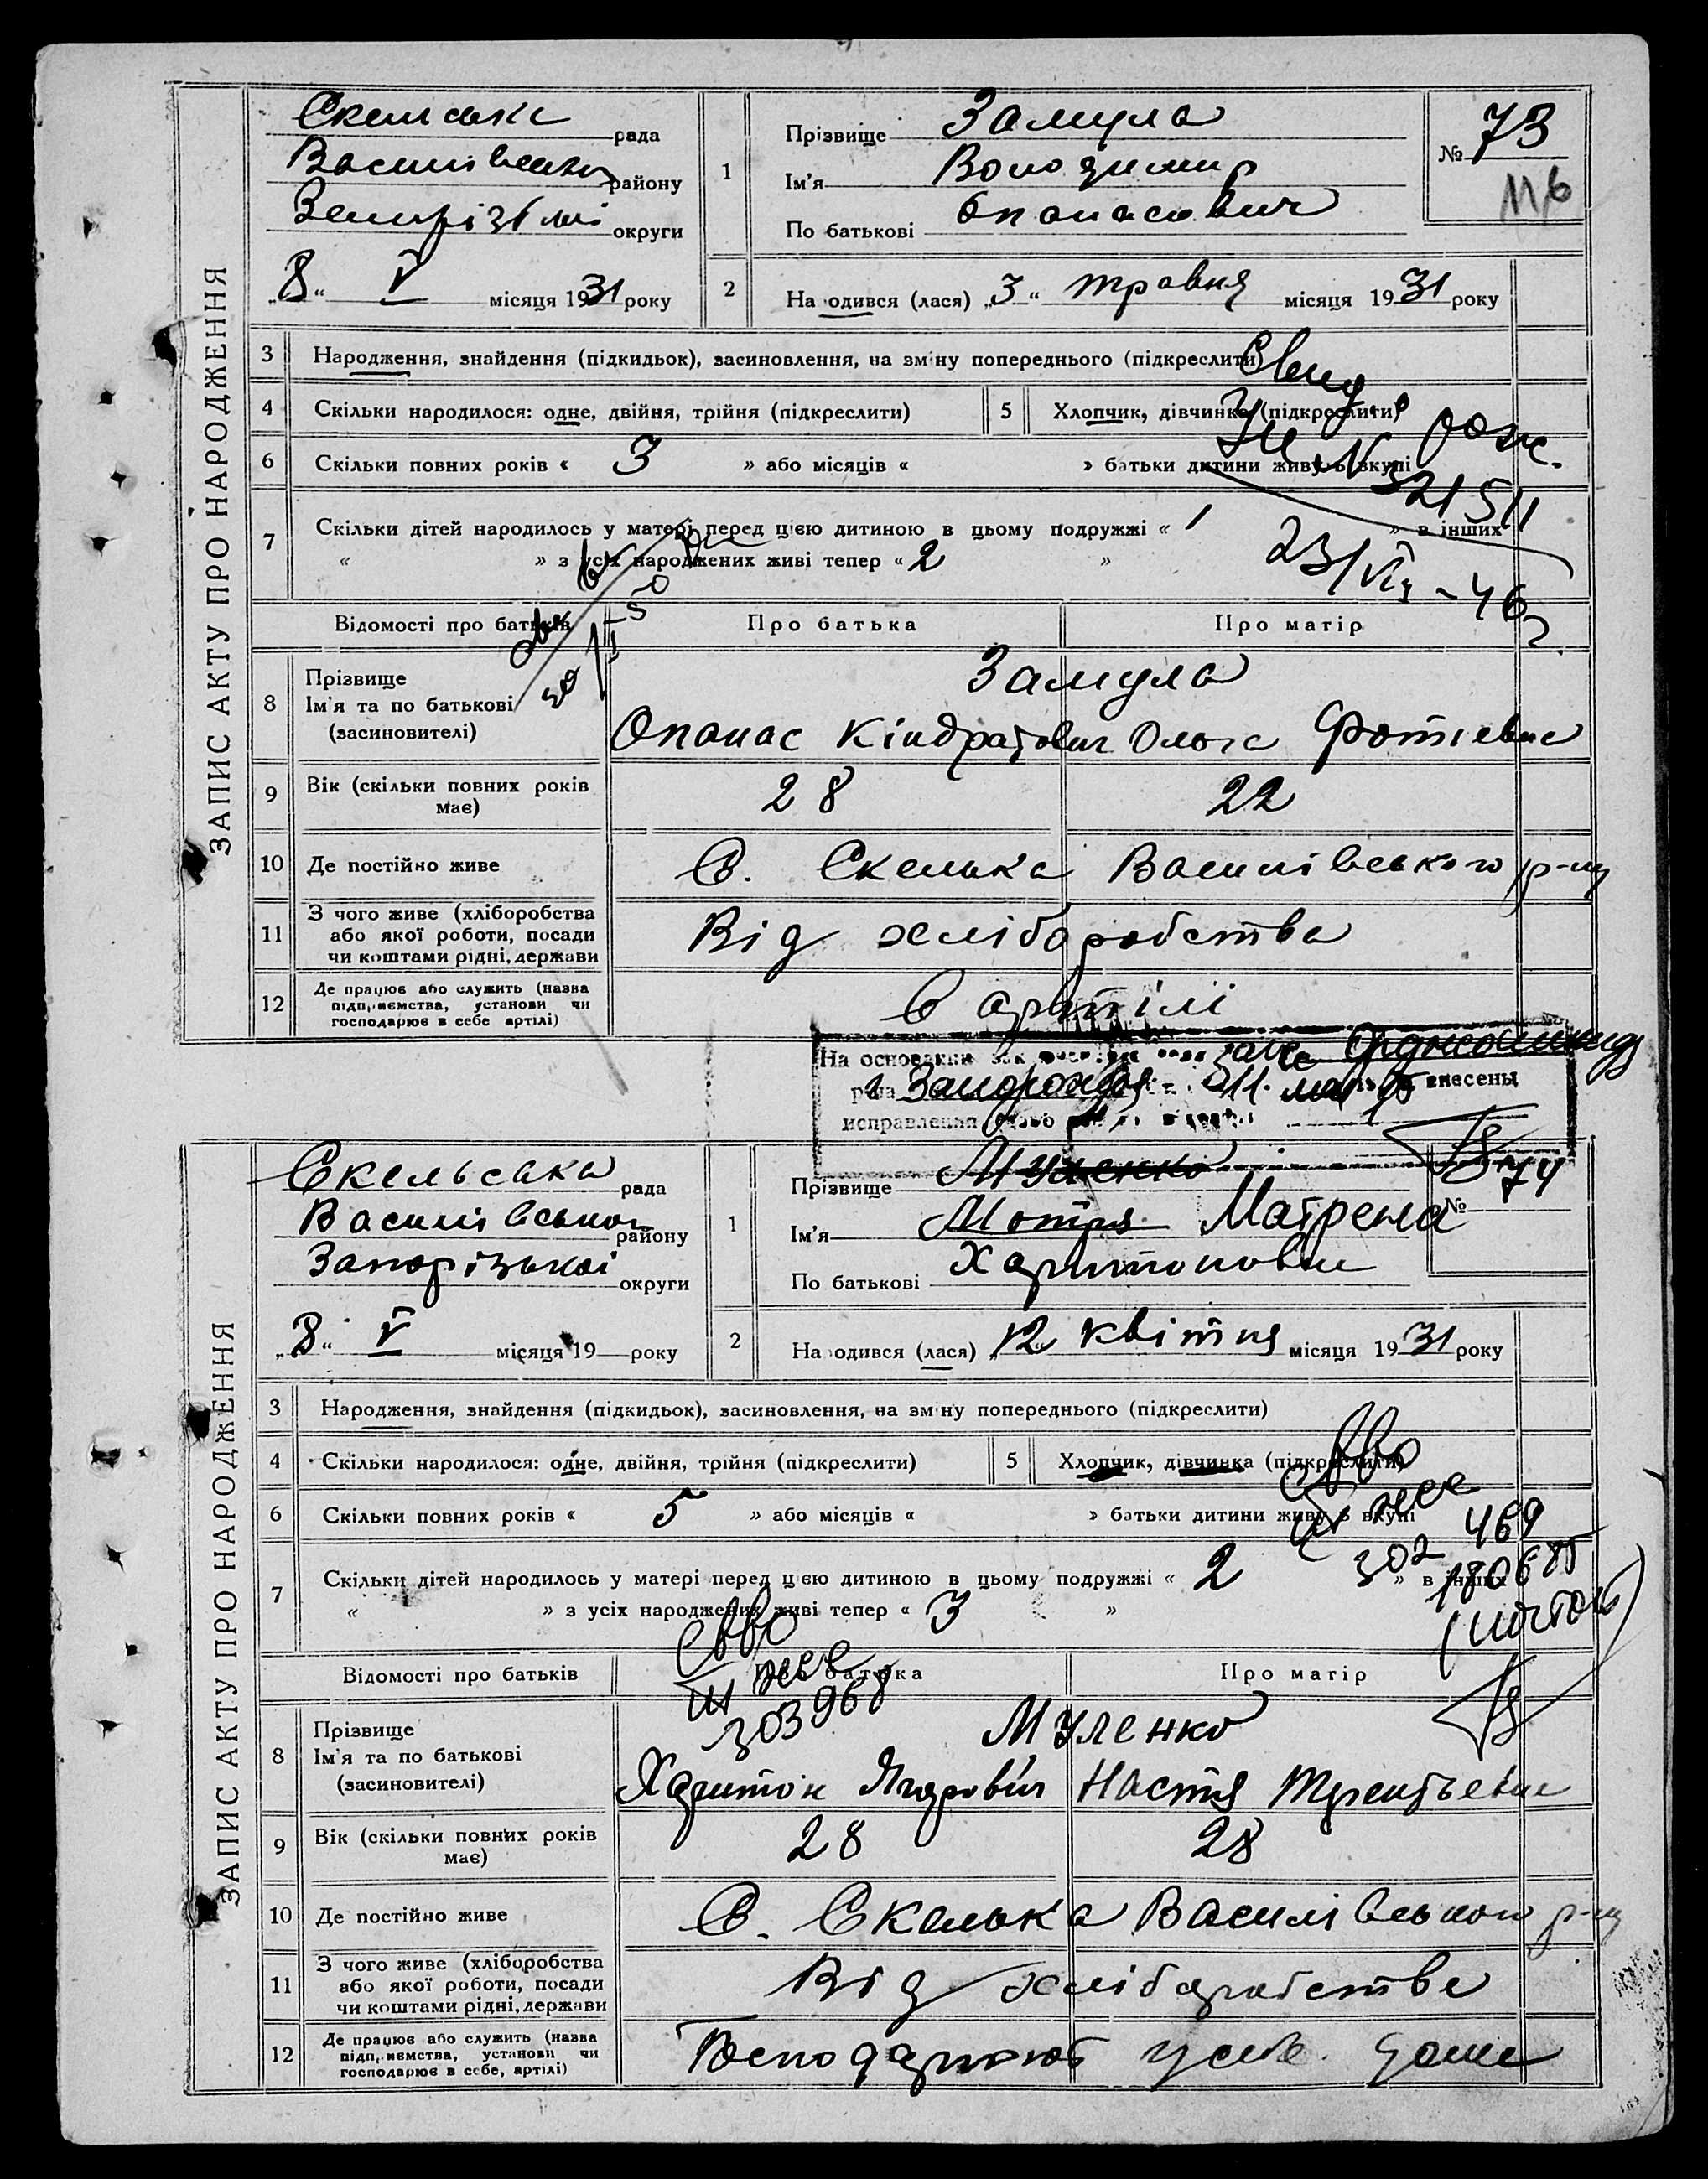 ЗАПИС АКТУ ПРО НАРОДЖЕННЯ
Скельська рада
Василівськ району
Запорізької округи
„8“ V місяця 1931 року
1 Прізвище Замула
Ім'я Володимир
По батькові Опанасович
№ 73
116
2 На одився (лася) „3“ травня місяця 1931 року
3 Народження, знайдення (підкидьок), засиновлення, на зміну попереднього (підкреслити)
4 Скільки народилося: одне, двійня, трійня (підкреслити)
5 Хлопчик, дівчинка (підкреслити)
6 Скільки повних років « 3 » або місяців « » батьки дитини живуть вкупі
7 Скільки дітей народилось у матері перед цією дитиною в цьому подружжі « 1 » в інших
« » з усіх народжених живі тепер « 2 »
Свид. о рож.
№ 321511
23/VII-46
Відомості про батьків Про батька Про матір
8 Прізвище
Ім'я та по батькові
(засиновителі)
Замула
Опанас Кіндратович Ольга Фотіевна
9 Вік (скільки повних років має) 28 22
10 Де постійно живе С. Скелька Василівського р-ну
11 З чого живе (хліборобства або якої роботи, посади чи коштами рідні, держави
Від хліборобства
12 Де працює або служить (назва підприємства, установи чи господарює в себе артілі)
в артілі
На основании
внесены
исправления
ЗАПИС АКТУ ПРО НАРОДЖЕННЯ
Скельська рада
Василівської району
Запорізької округи
„8“ V місяця 19 року
1 Прізвище Муленко
Ім'я Мотря Матрена
По батькові Харитоновна
№ 74
2 На одився (лася) „12“ квітня місяця 1931 року
3 Народження, знайдення (підкидьок), засиновлення, на зміну попереднього (підкреслити)
4 Скільки народилося: одне, двійня, трійня (підкреслити)
5 Хлопчик, дівчинка (підкреслити)
6 Скільки повних років « 5 » або місяців « » батьки дитини живуть вкупі
7 Скільки дітей народилось у матері перед цією дитиною в цьому подружжі « 2 » в інших
« » з усіх народжених живі тепер « 3 »
303968
Відомості про батьків Про батька Про матір
8 Прізвище
Ім'я та по батькові
(засиновителі)
Муленко
Харитон Ягорович Настя Терентьевна
9 Вік (скільки повних років має) 28 28
10 Де постійно живе С. Скелька Василівського р-ну
11 З чого живе (хліборобства або якої роботи, посади чи коштами рідні, держави
Від хліборобства
12 Де працює або служить (назва підприємства, установи чи господарює в себе, артілі)
Господарюют у себе дома